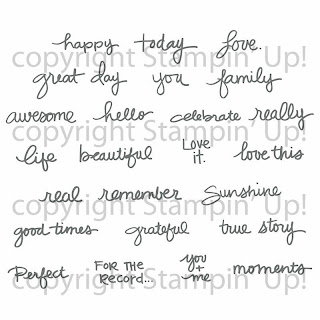 happy today love.
copyright Stampin' Up!
great day you family
awesome hello celebrate really
copyright Stampin' Up!
life beautiful Love it. love this
real remember Sunshine
copyright Stampin' Up!
good times grateful true story
Perfect FOR THE RECORD... you + me moments
copyright Stampin' Up!